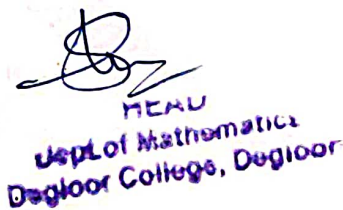 HEAD
Dept of Mathematics
Degloor College, Degloor